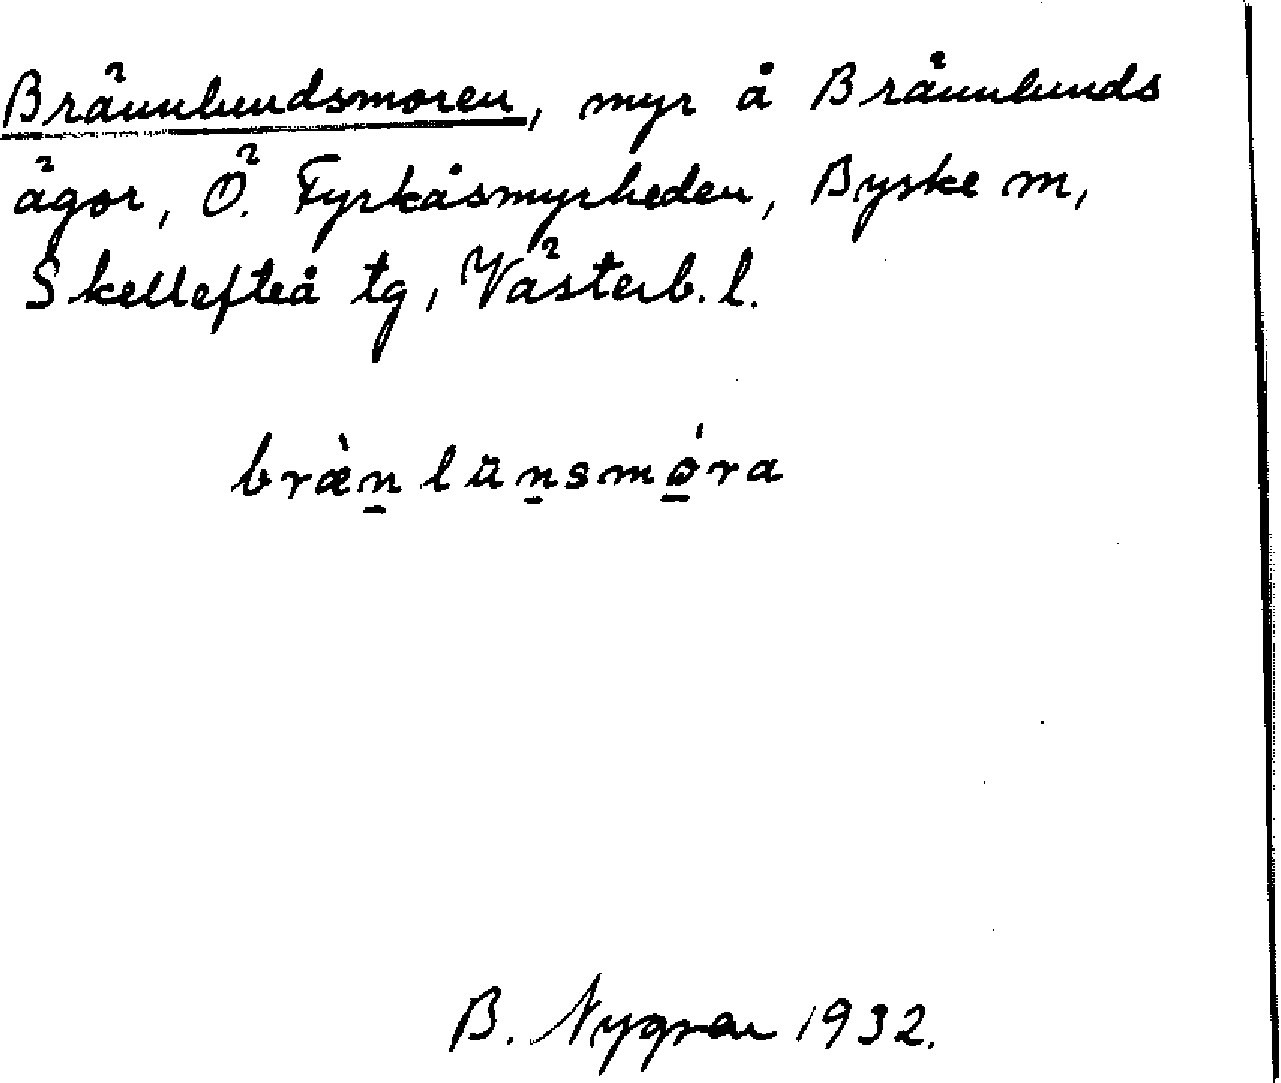 Brännlundsmoren, myr å Brännlunds
ägor, Ö. Fyrkåsmyrheden, Byske m,
Skellefteå tg, Västerb. l.
bræ̀n̠lun̠smǿ̠ra
B. Nygren 1932.